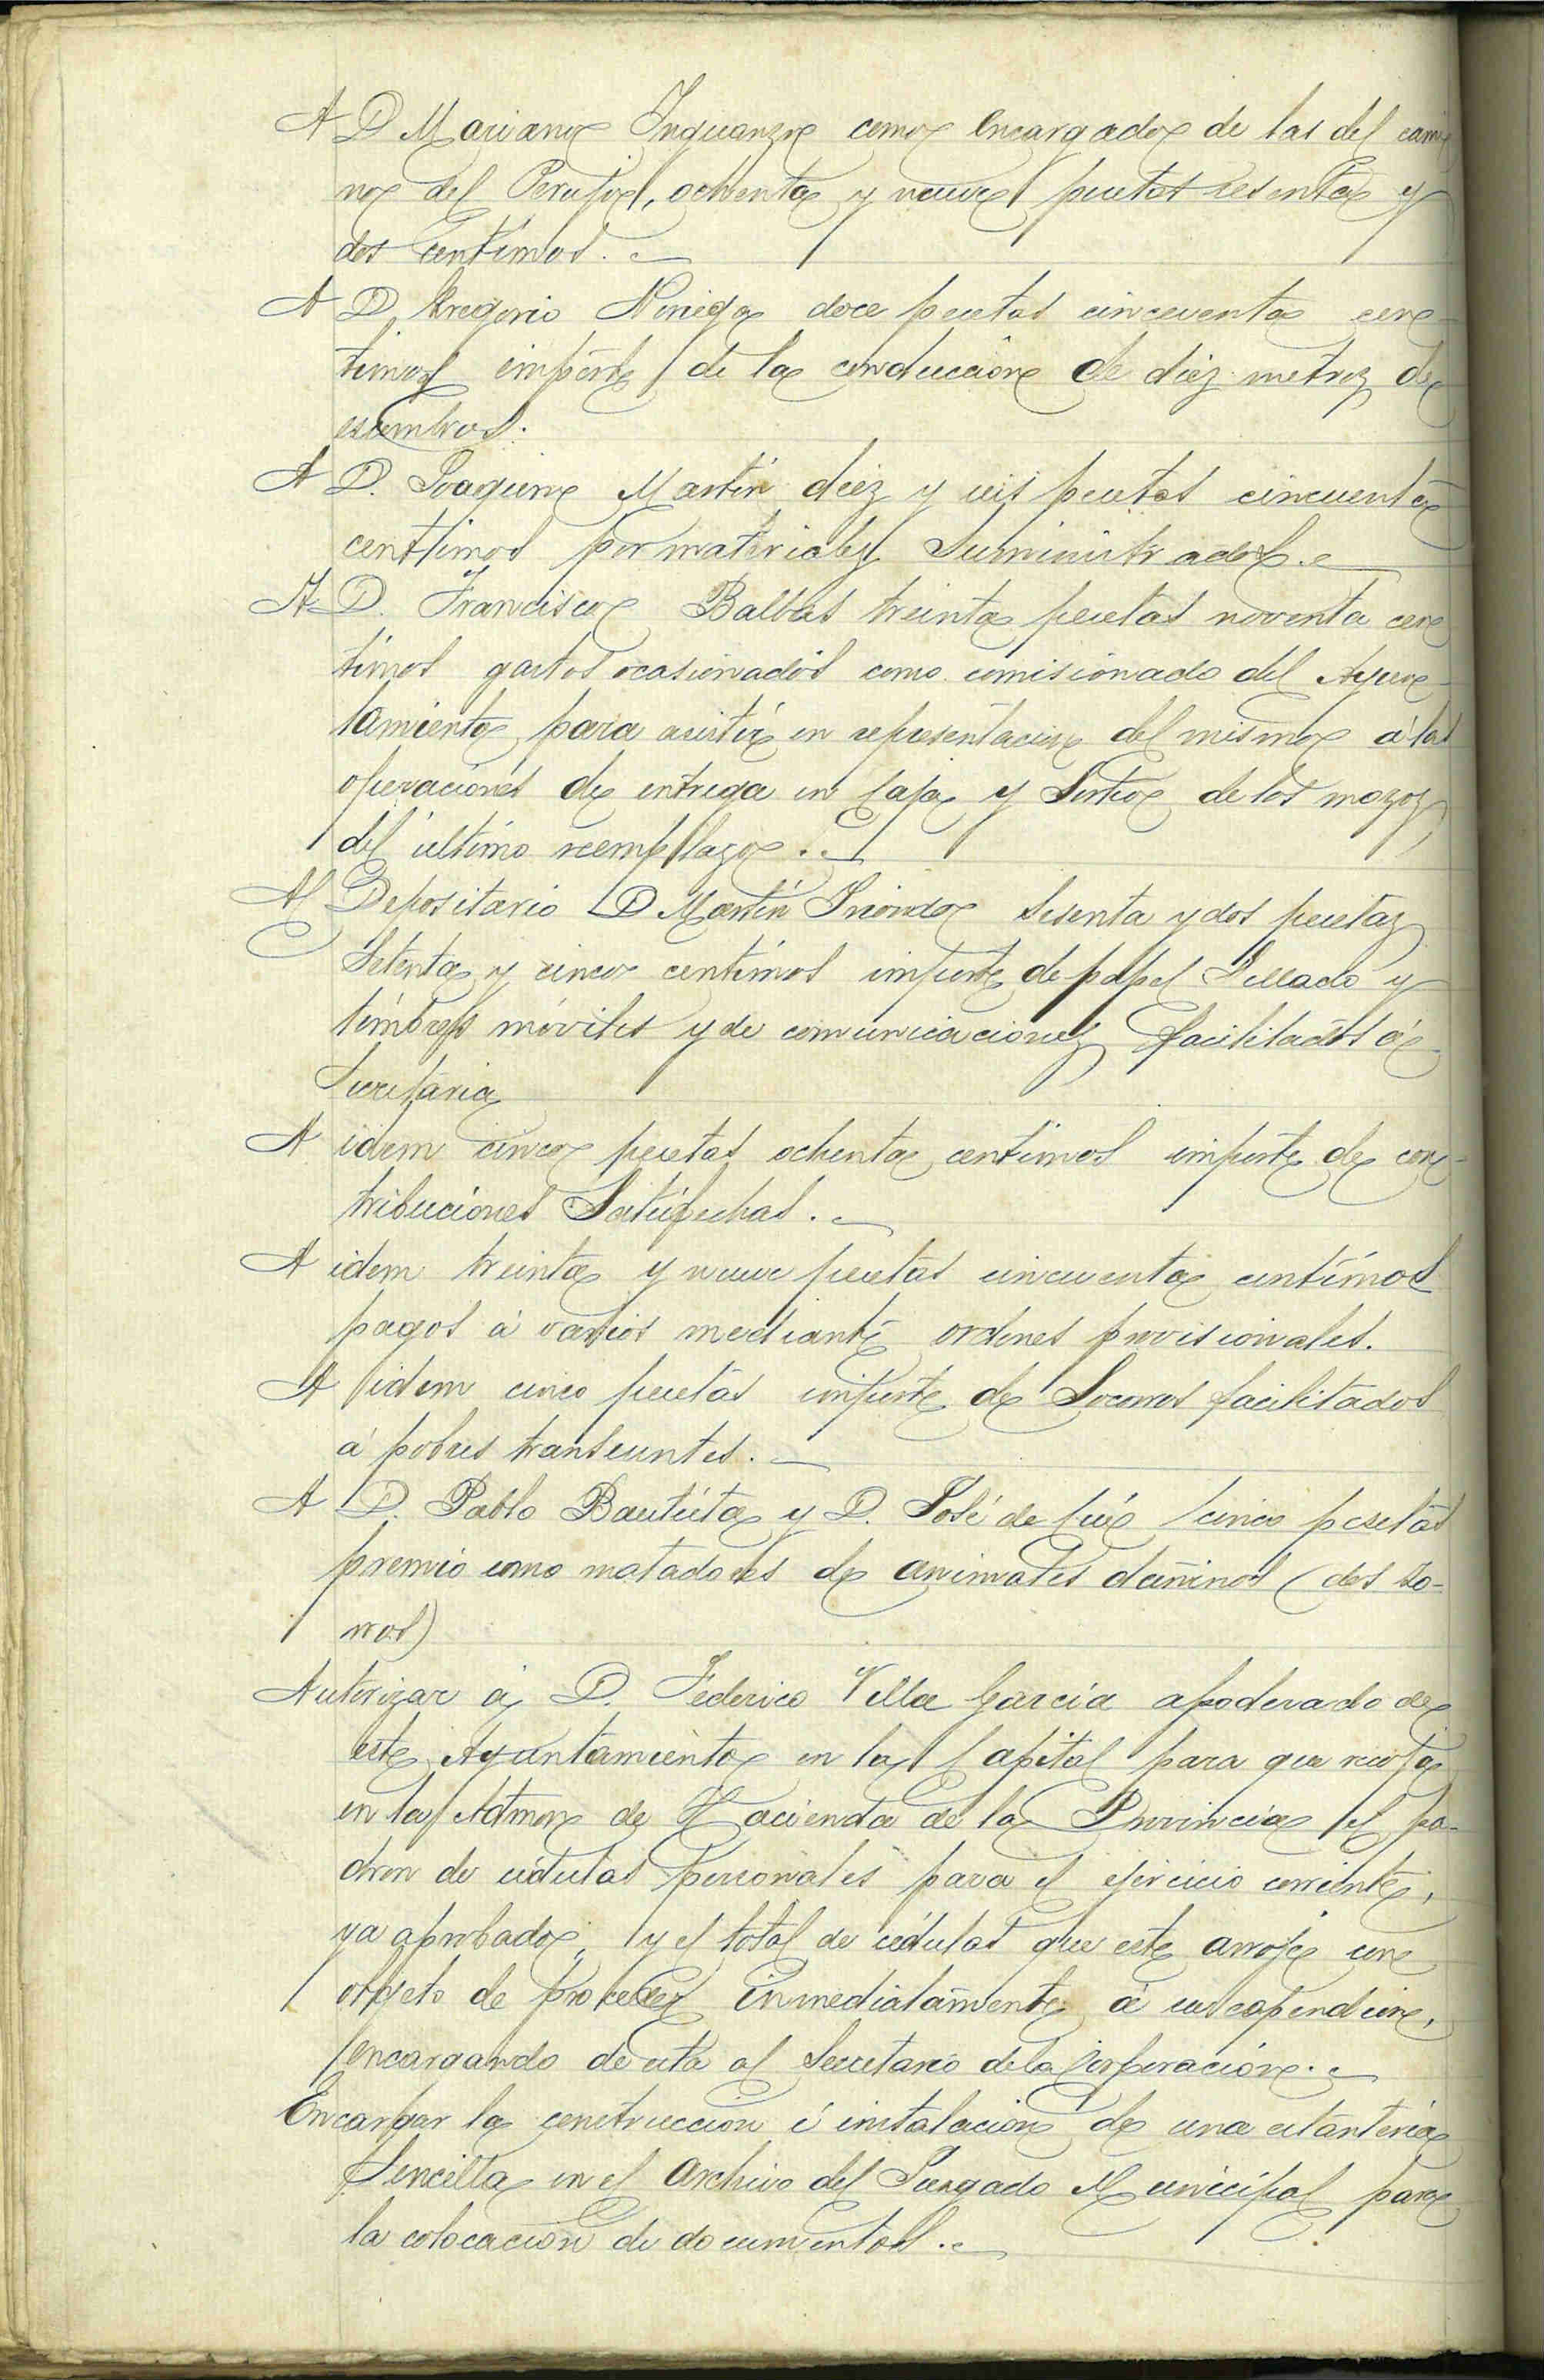 A D Mariano Inguanzo como encargado de las del cami
no del Perujo, ochenta y nueve pesetas sesenta y
dos centimos.
A D Gregorio Noriega doce pesetas cincuenta cen-
timos importe de la conducción de diez metros de
escombros.
A D. Joaquin Martín diez y seis pesetas cincuenta
centimos por materiales suministrados.
A D. Francisco Balbas treinta pesetas noventa cen
timos gastos ocasionados como comisionado del Ayun-
tamiento para asistir en representacion del mismo á las
operaciones de entrega en Caja y Sorteo de los mozos
del último reemplazo.
Al Depositario D Martín Iriondo sesenta y dos pesetas
Setenta y cinco centimos importe de papel Sellado y
timbres móviles y de comunicaciones facilitados á
Secretaria
A idem cinco pesetas ochenta centimos importe de con-
tribuciones Satisfechas.
A idem treinta y nueve pesetas cincuenta centimos
pagos á varios mediante ordenes provisionales.
A idem cinco pesetas importe de Socorros facilitados
á pobres transeuntes.
A D. Pablo Bautista y D. José de cinco pesetas
premio como matadores de animales dañinos (dos zo-
rros)
Autorizar á D. Federico Villa García apoderado de
este Ayuntamiento en la Capital para que recoja
en la Admon de Hacienda de la Provincia el pa-
dron de cédulas personales para el ejercicio corriente,
ya aprobado, y el total de cédulas que este arroje con
objeto de proceder inmediatamente á su expendicion,
encargando de esta al Secretario de la Corporación.
Encargar la construcción é instalacion de una estantería
Sencilla en el Archivo del Juzgado Municipal para
la colocación de documentos.